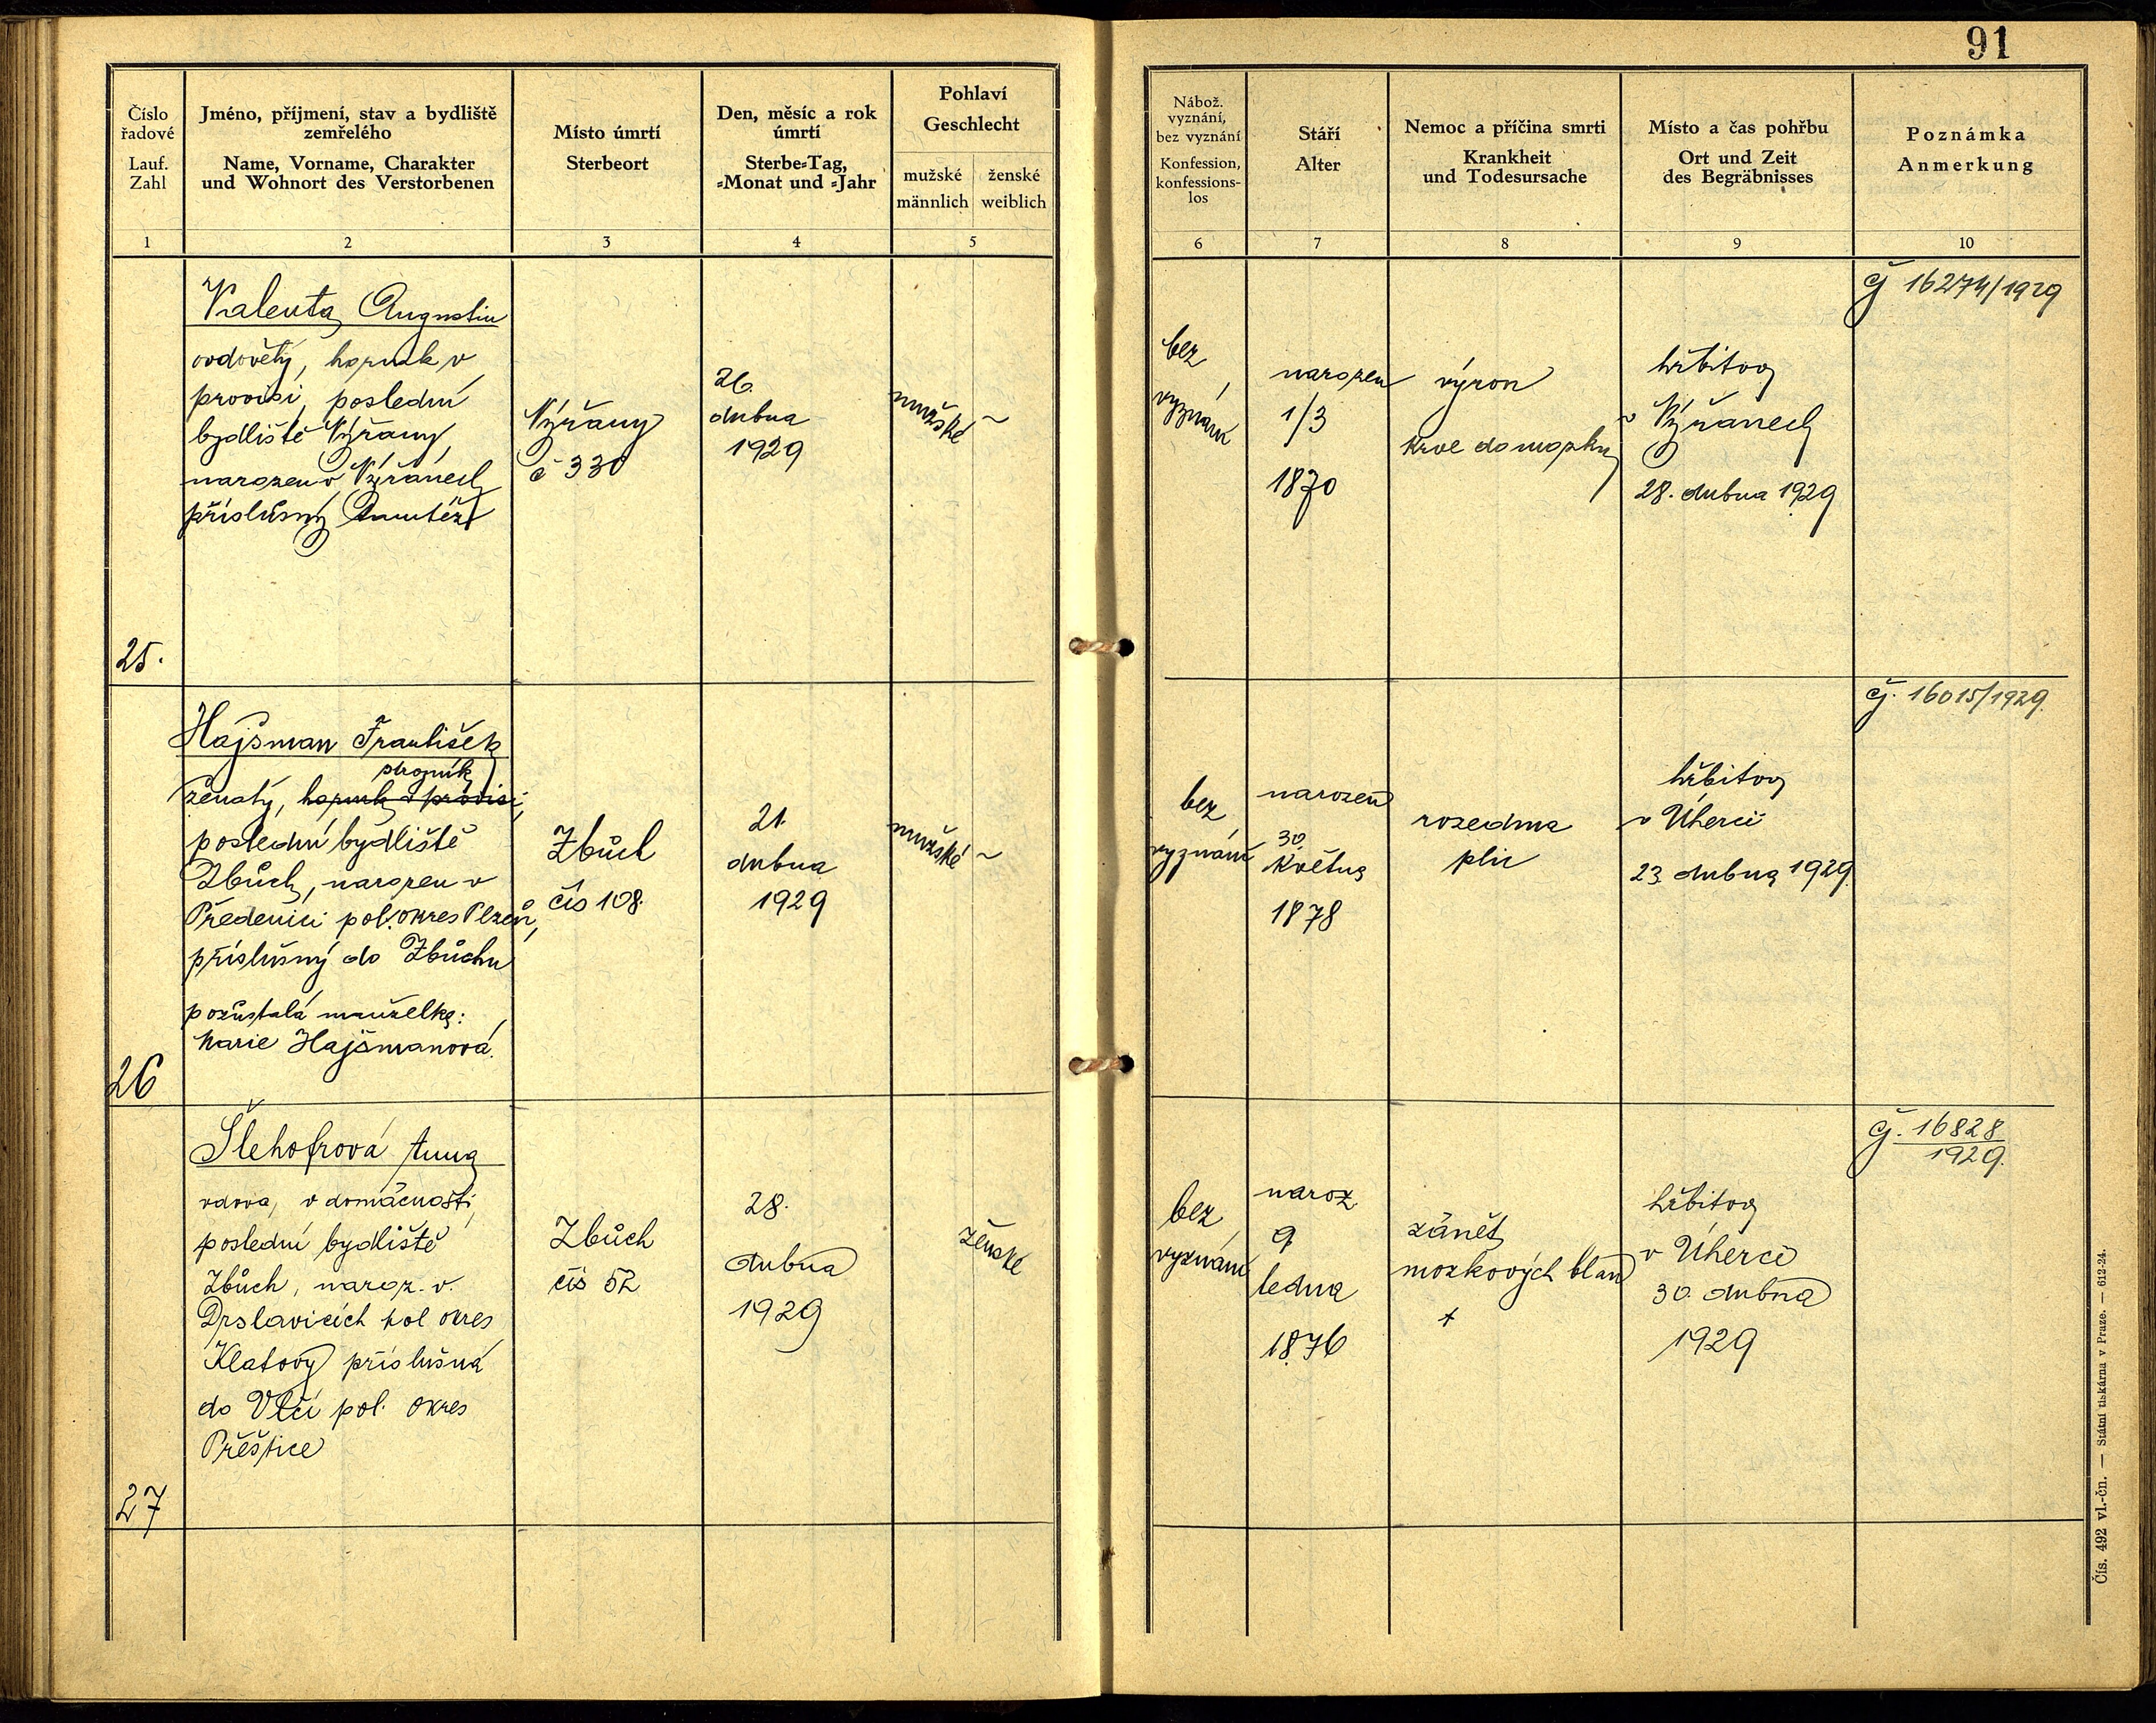 91
Číslo
řadové
Lauf.
Zahl
Jméno, příjmení, stav a bydliště
zemřelého
Name, Vorname, Charakter
und Wohnort des Verstorbenen
Místo úmrtí
Sterbeort
Den, měsíc a rok
úmrtí
Sterbe-Tag,
-Monat und -Jahr
Pohlaví
Geschlecht
mužské
männlich
ženské
weiblich
Nábož.
vyznání,
bez vyznání
Konfession,
konfessions-
los
Stáří
Alter
Nemoc a příčina smrti
Krankheit
und Todesursache
Místo a čas pohřbu
Ort und Zeit
des Begräbnisses
Poznámka
Anmerkung
1
2
3
4
5
6
7
8
9
10
25.
Valenta Augustin
ovdovělý, horník v
provisi, poslední
bydliště Výřany,
narozen v Výřanech
příslušný tamtéž
Výřany
č 330
26.
dubna
1929
mužské
~
bez
vyznání
narozen
1/3
1870
výron
krve do mozku
hřbitov
v Výřanech
28. dubna 1929
čj 16274/1929
26
Hajšman František
strojník
ženatý, horník v provisi,
poslední bydliště
Zbůch, narozen v
Předenici pol. okres Plzeň,
příslušný do Zbůchu
pozůstalá manželka:
Marie Hajšmanová.
Zbůch
čís 108.
21.
dubna
1929
mužské
~
bez
vyznání
narozen
30.
května
1878
rozedma
plic
hřbitov
v Úherci
23. dubna 1929.
čj. 16015/1929.
27
Šlehofrová Anna
vdova, v domácnosti,
poslední bydliště
Zbůch, naroz. v.
Drslavicích pol okres
Klatovy příslušná
do Vlčí pol. okres
Přeštice
Zbůch
čís 52
28.
dubna
1929
ženské
bez
vyznání
naroz.
9
ledna
1876
zánět
mozkových blan
+
hřbitov
v Úherci
30. dubna
1929
čj. 16828
1929.
Čís. 492 vl.-čn. — Státní tiskárna v Praze. — 612-24.